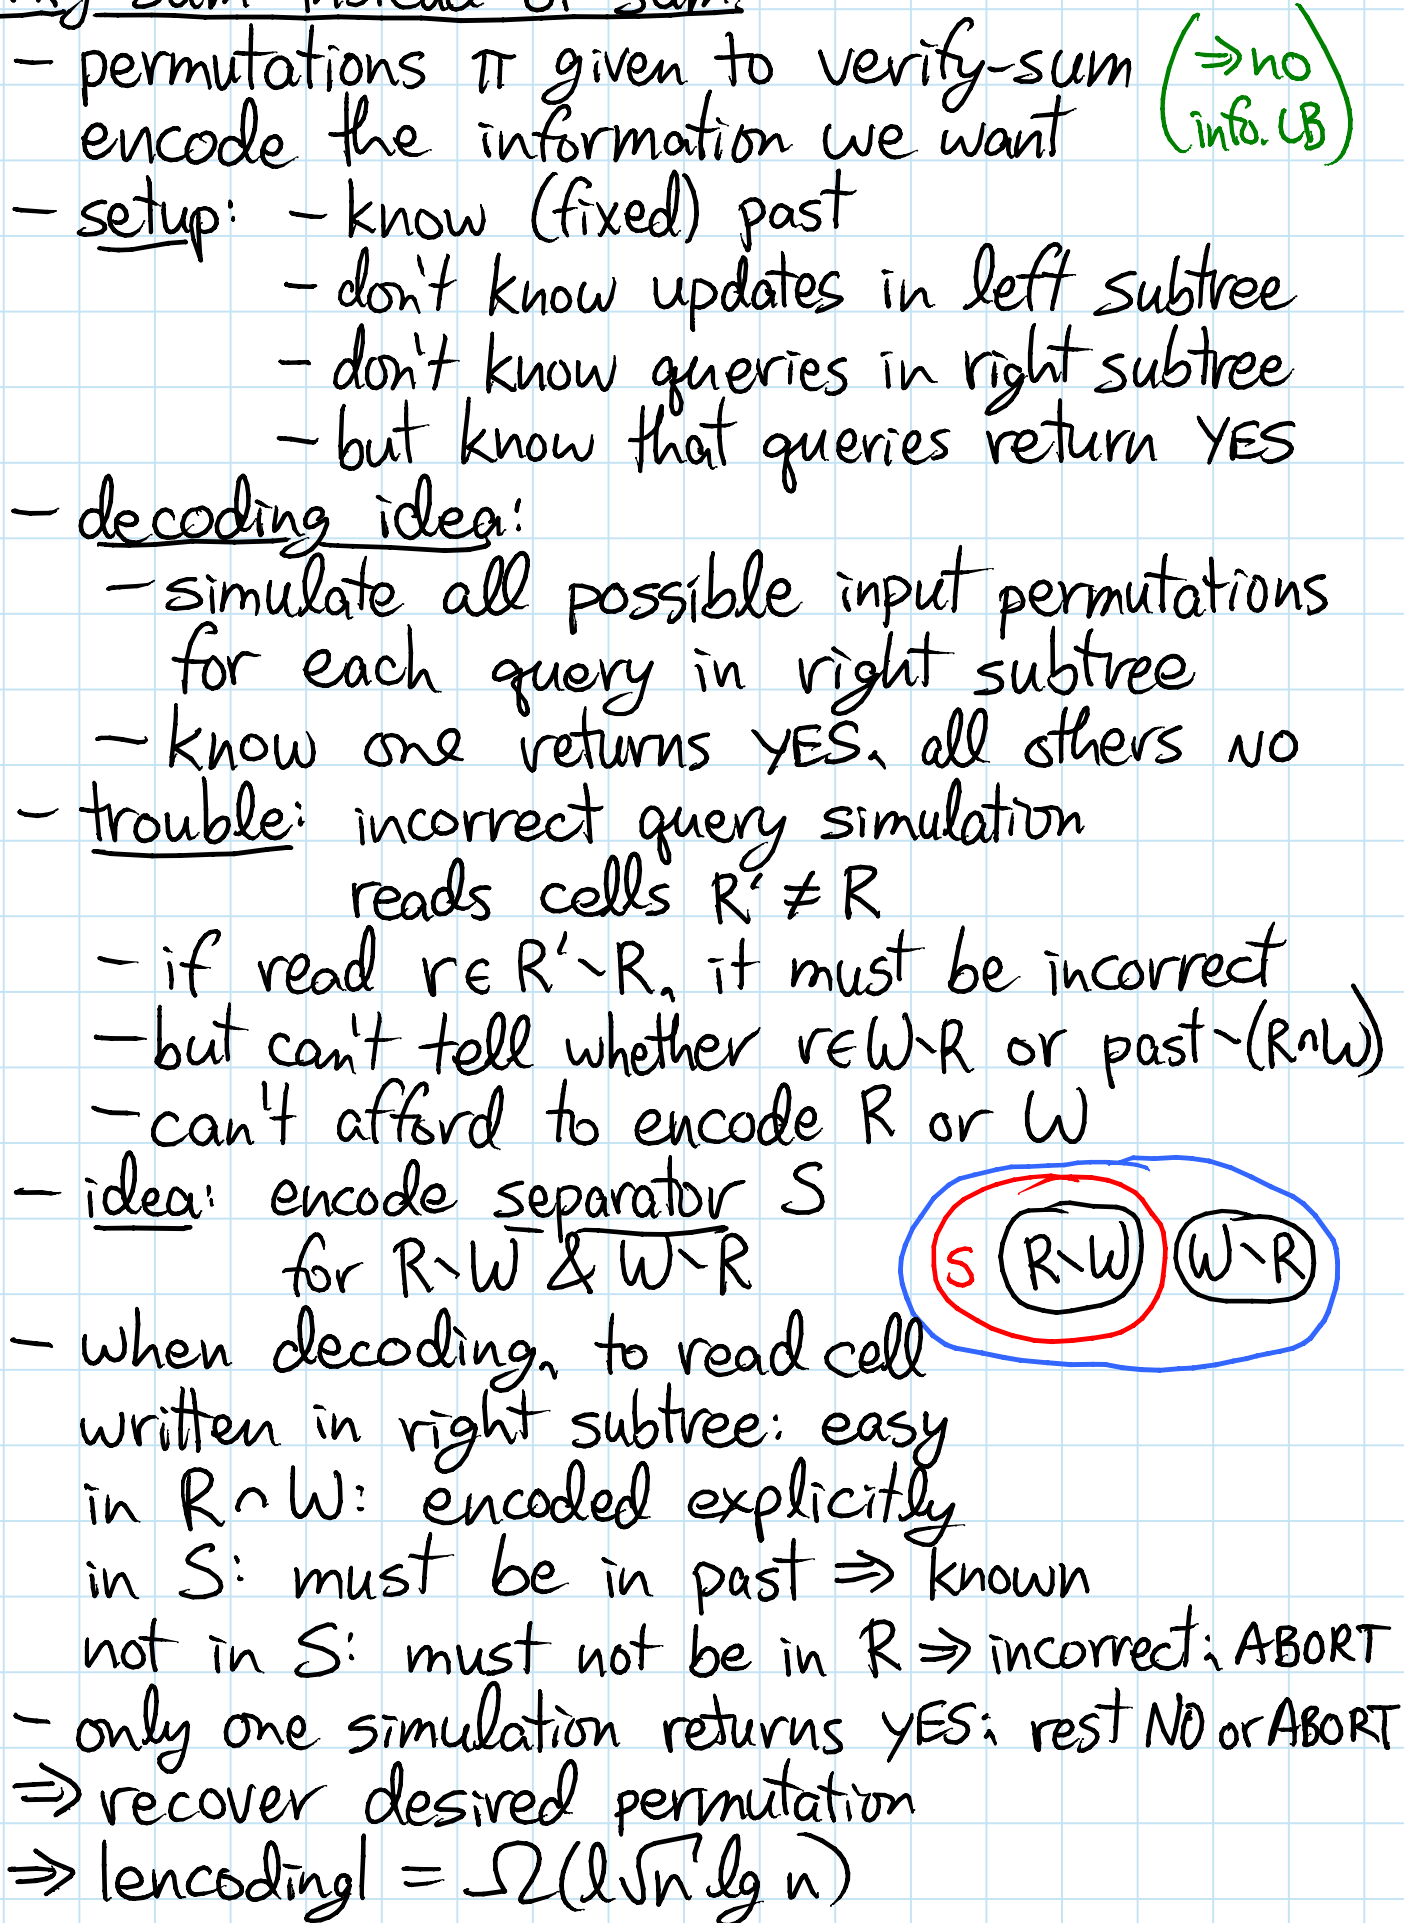 sum instead of sum:
– permutations π given to verify-sum (⇒ no
encode the information we want info. LB)
– setup: – know (fixed) past
– don't know updates in left subtree
– don't know queries in right subtree
– but know that queries return YES
– decoding idea:
– simulate all possible input permutations
for each query in right subtree
– know one returns YES, all others NO
– trouble: incorrect query simulation
reads cells R' ≠ R
– if read r∈R'∖R, it must be incorrect
– but can't tell whether r∈W∖R or past∖(R∩W)
– can't afford to encode R or W
– idea: encode separator S
for R∖W & W∖R
S R∖W W∖R
– when decoding, to read cell
written in right subtree: easy
in R∩W: encoded explicitly
in S: must be in past ⇒ known
not in S: must not be in R ⇒ incorrect; ABORT
– only one simulation returns YES; rest NO or ABORT
⇒ recover desired permutation
⇒ |encoding| = Ω(l√n lg n)